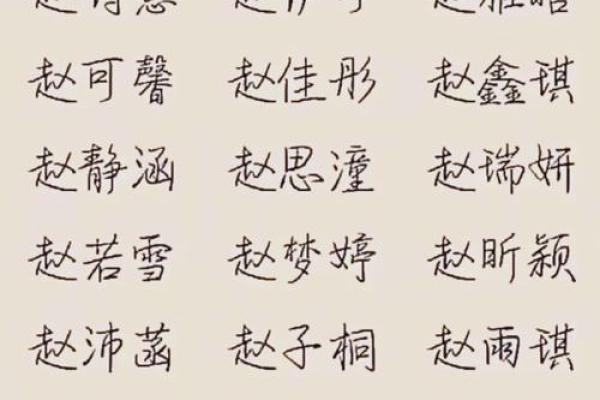 赵可馨 赵佳彤 赵鑫琪
赵静涵 赵思潼 赵瑞妍
赵若雪 赵梦婷 赵昕颍
赵沛菡 赵子桐 赵雨琪